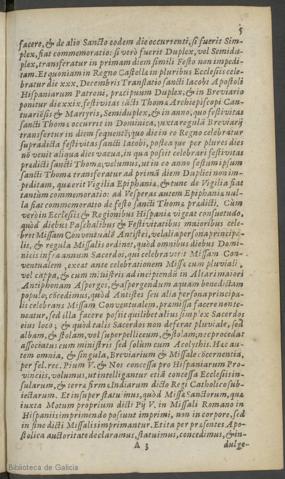 5
facere, & de alio Sancto eodem die occurrenti, si fuerit Sim-
plex, fiat commemoratio: si verò fuerit Duplex, vel Semidu-
plex, transferatur in primam diem simili Festo non impedi-
tam. Et quoniam in Regno Castellæ in pluribus Ecclesiis cele-
bratur die xxx. Decembris Translatio sancti Iacobi Apostoli
Hispaniarum Patroni, præcipuum Duplex, & in Breviario
ponitur die xxix. festivitas sācti Thomæ Archiepiscopi Can-
tuariēsis & Martyris, Semiduplex, & in anno, quo festivitas
sancti Thomæ occurrit in Dominica, iuxta regulā Breviarij
transfertur in diem sequentē, quo die in eo Regno celebratur
supradicta festivitas sancti Iacobi, postea que per plures dies
nō venit aliqua dies vacua, in qua possit celebrari festivitas
prædicti sancti Thomæ, volumus, ut in eo anno festum ipsum
sancti Thomæ transferatur ad primā diem Duplici non im-
peditam, quæ erit Vigilia Epiphaniæ, & tunc de Vigilia fiat
tantùm commemoratio: ad Vesperas autem Epiphaniæ nul-
la fiat commemoratio de festo sancti Thomæ prædicti. Cùm
verò in Ecclesiis & Regionibus Hispaniæ vigeat consuetudo,
quòd diebus Paschalibus & Festivitatibus maioribus cele-
bret Missam Conventualē Antistes, vel alia persona principa-
lis, & regula Missalis ordinet, quòd omnibus diebus Domi-
nicis infra annum Sacerdos, qui celebraturus Missam Con-
ventualem, exeat ante celebrationem Missæ cum pluviali,
vel cappa, & cum ministris ad incipiendū in Altari maiori
Antiphonam Asperges, & aspergendum aquam benedictam
populo, cōcedimus, quòd Antistes seu alia persona principa-
lis celebrans Missam Conventualem, præmissa facere non te-
neatur, sed illa facere possit quilibet alius simplex Sacerdos
eius loco, & quòd talis Sacerdos non deferat pluviale, sed
albam, & stolam, vel superpelliceum, & stolam, nec procedat
associatus cum ministris sed solùm cum Acolythis. Hæc au-
tem omnia, & singula, Breviarium & Missale concernentia,
per fel. rec. Pium V. & Nos concessa pro Hispaniarum Pro-
vinciis, volumus, ut intelligantur etiā concessa Ecclesiis in-
sularum, & terræ firmæ Indiarum dicto Regi Catholico sub-
iectarum. Et insuper statuimus, quòd Missæ Sanctorum, quæ
iuxta Motum proprium dicti Pij V. in Missali Romano in
Hispaniis imprimendo possunt imprimi, non in corpore, sed
in fine dicti Missalis imprimantur. Et ita per præsentes Apo-
stolica auctoritate declaramus, statuimus, concedimus, & in-
A 3
dulge-
Biblioteca de Galicia